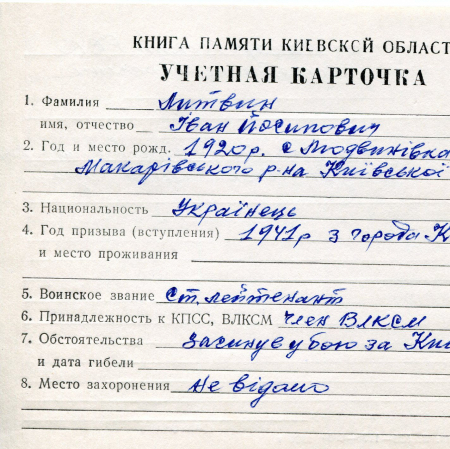 КНИГА ПАМЯТИ КИЕВСКОЙ ОБЛАСТ
УЧЕТНАЯ КАРТОЧКА
1. Фамилия Литвин
имя, отчество Іван Йосипович
2. Год и место рожд. 1920р. с Людвинівка
Макарівського р-на Київської
3. Национальность Українець
4. Год призыва (вступления) 1941р з города К
и место проживания
5. Воинское звание Ст. лейтенант
6. Принадлежность к КПСС, ВЛКСМ член ВЛКСМ
7. Обстоятельства Загинув у бою за Ки
и дата гибели
8. Место захоронения Не відомо